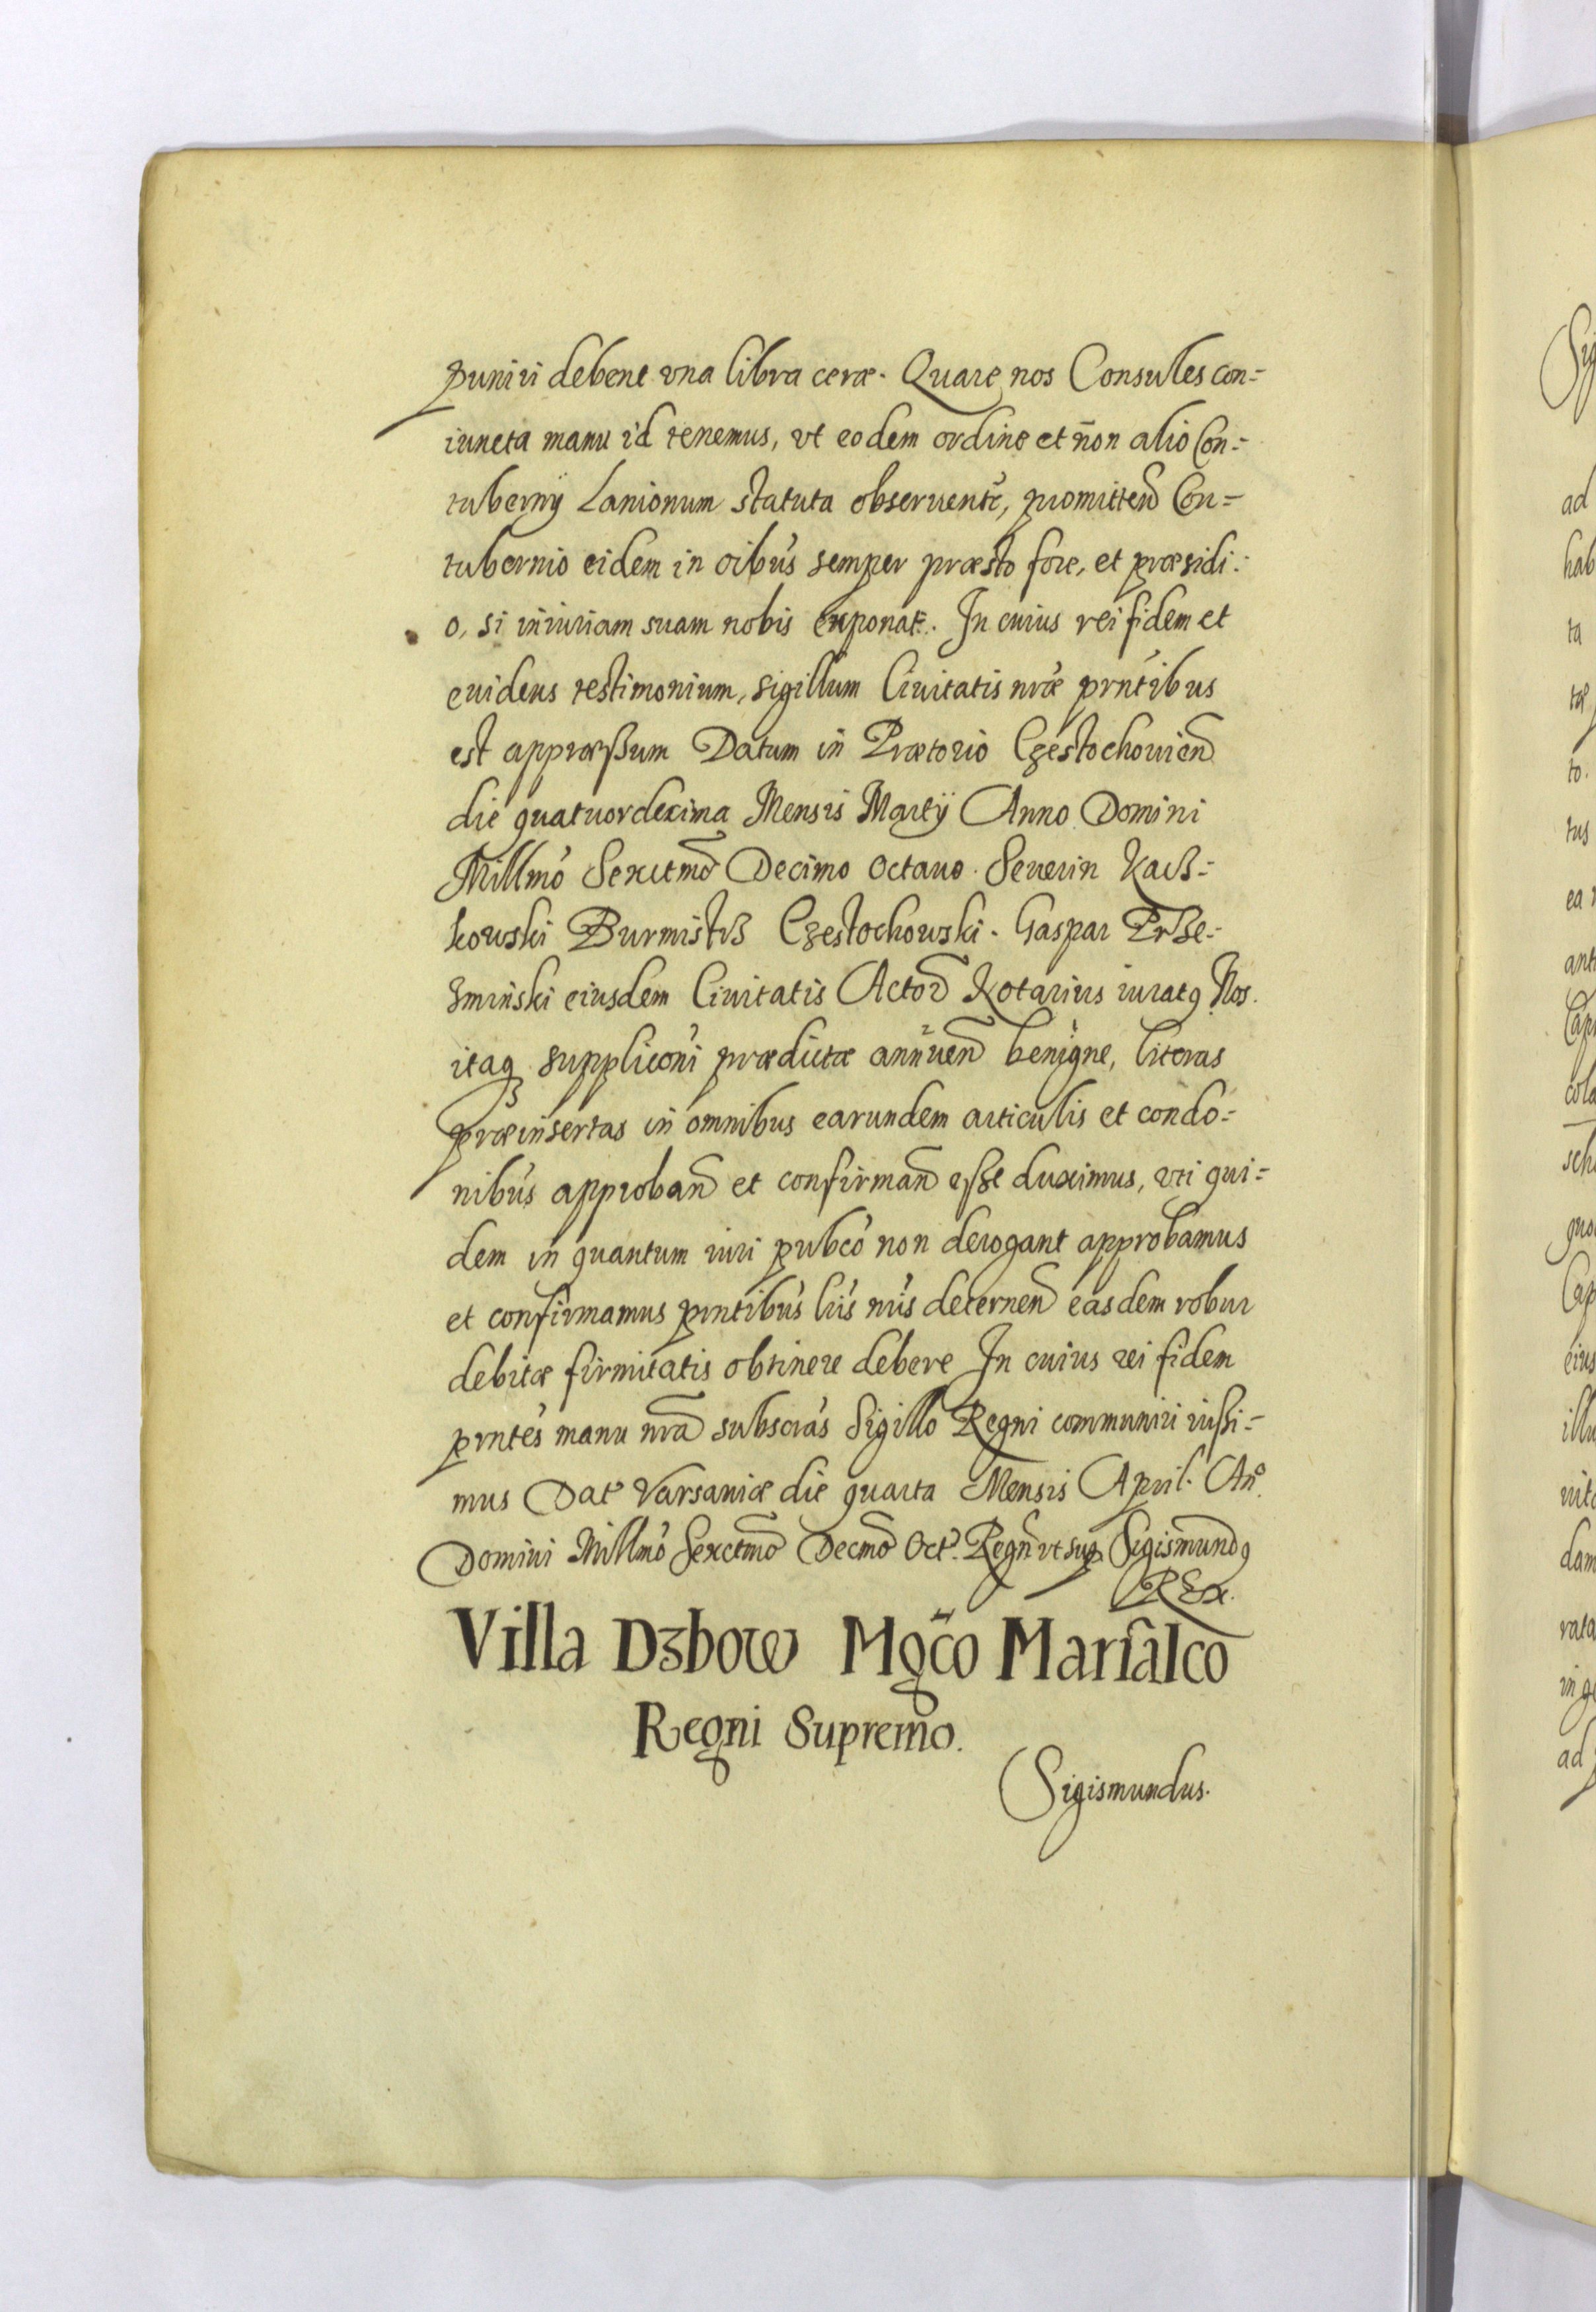 puniri debent vna libra ceræ. Quare nos Consules con=
iuncta manu id tenemus, vt eodem ordine et non alio Con=
tubernij Lanionum statuta obseruentr, promitten̄ Con=
tubernio eidem in oibus semper præsto fore, et præsidi=
o, si iniuriam suam nobis exponat. In cuius rei fidem et
euidens testimonium, sigillum Ciuitatis nræ prntibus
est appræßum Datum in Prætorio Częstochouien̄
die quatuordecima Mensis Martij Anno Domini
Millmo Sexctmo Decimo Octauo. Seuerin Kacz=
kowski Burmistrz Częstochowski. Gaspar Prze=
zminski eiusdem Ciuitatis Actor̄ Notarius iuratꝯ Nos
itaqꝫ suppliconi prædictæ annuen̄ benigne, literas
præinsertas in omnibus earundem articulis et condo=
nibus approban̄ et confirman̄ eße duximus, vti qui=
dem in quantum iuri pubco non derogant approbamus
et confirmamus prntibus lris nris decernen̄ easdem robur
debitæ firmitatis obtinere debere In cuius rei fidem
prntes manu nra subscras Sigillo Regni communiri iußi=
mus Dat Varsauiæ die quarta Mensis April. An͂o
Domini Millmo Sexctmo Decmo Oct. Regn̄ vt sup̱ Sigismundꝯ
REx.
Villa Dzbow Mgco Marsalco
Regni Supremo.
Sigismundus.